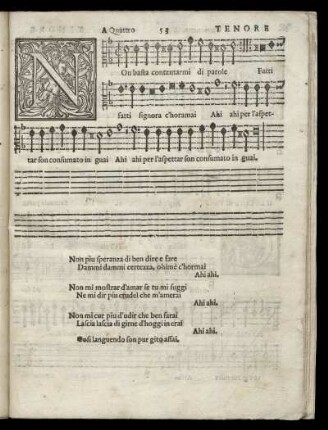 A Quattro 53 TENORE
NOn basta contentarmi di parole Fatti
fatti signora c'horamai Ahi ahi per l'aspet-
tar son consumato in guai Ahi ahi per l'aspettar son consumato in guai.
Non piu speranza di ben dire e fare
Dammi dammi certezza, ohime c'hormai
Ahi ahi.
Non mi mostrar d'amar se tu mi fuggi
Ne mi dir piu crudel che m'amerai
Ahi ahi.
Non mi cur piu d'udir che ben farai
Lascia lascia di girne d'hoggi in crai
Ahi ahi.
Cosi languendo son pur gito assai.